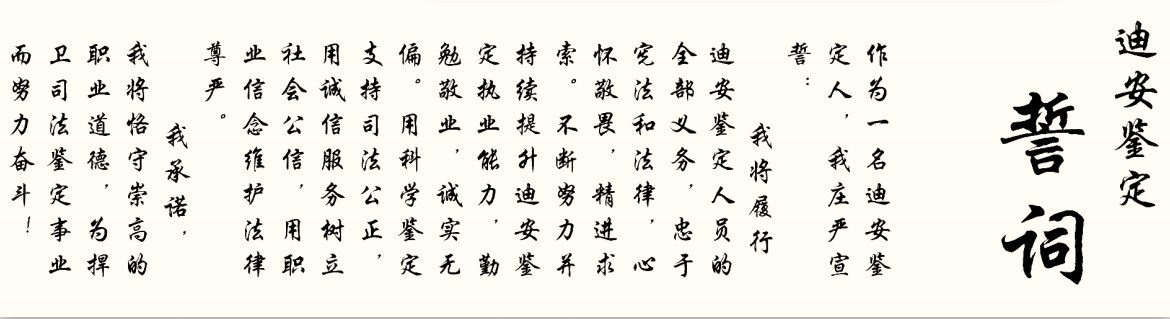 迪安鉴定
誓词
作为一名迪安鉴
定人，我庄严宣
誓：
我将履行
迪安鉴定人员的
全部义务，忠于
宪法和法律，心
怀敬畏，精进求
索。不断努力并
持续提升迪安鉴
定执业能力，勤
勉敬业，诚实无
偏。用科学鉴定
支持司法公正，
用诚信服务树立
社会公信，用职
业信念维护法律
尊严。
我承诺，
我将恪守崇高的
职业道德，为捍
卫司法鉴定事业
而努力奋斗！